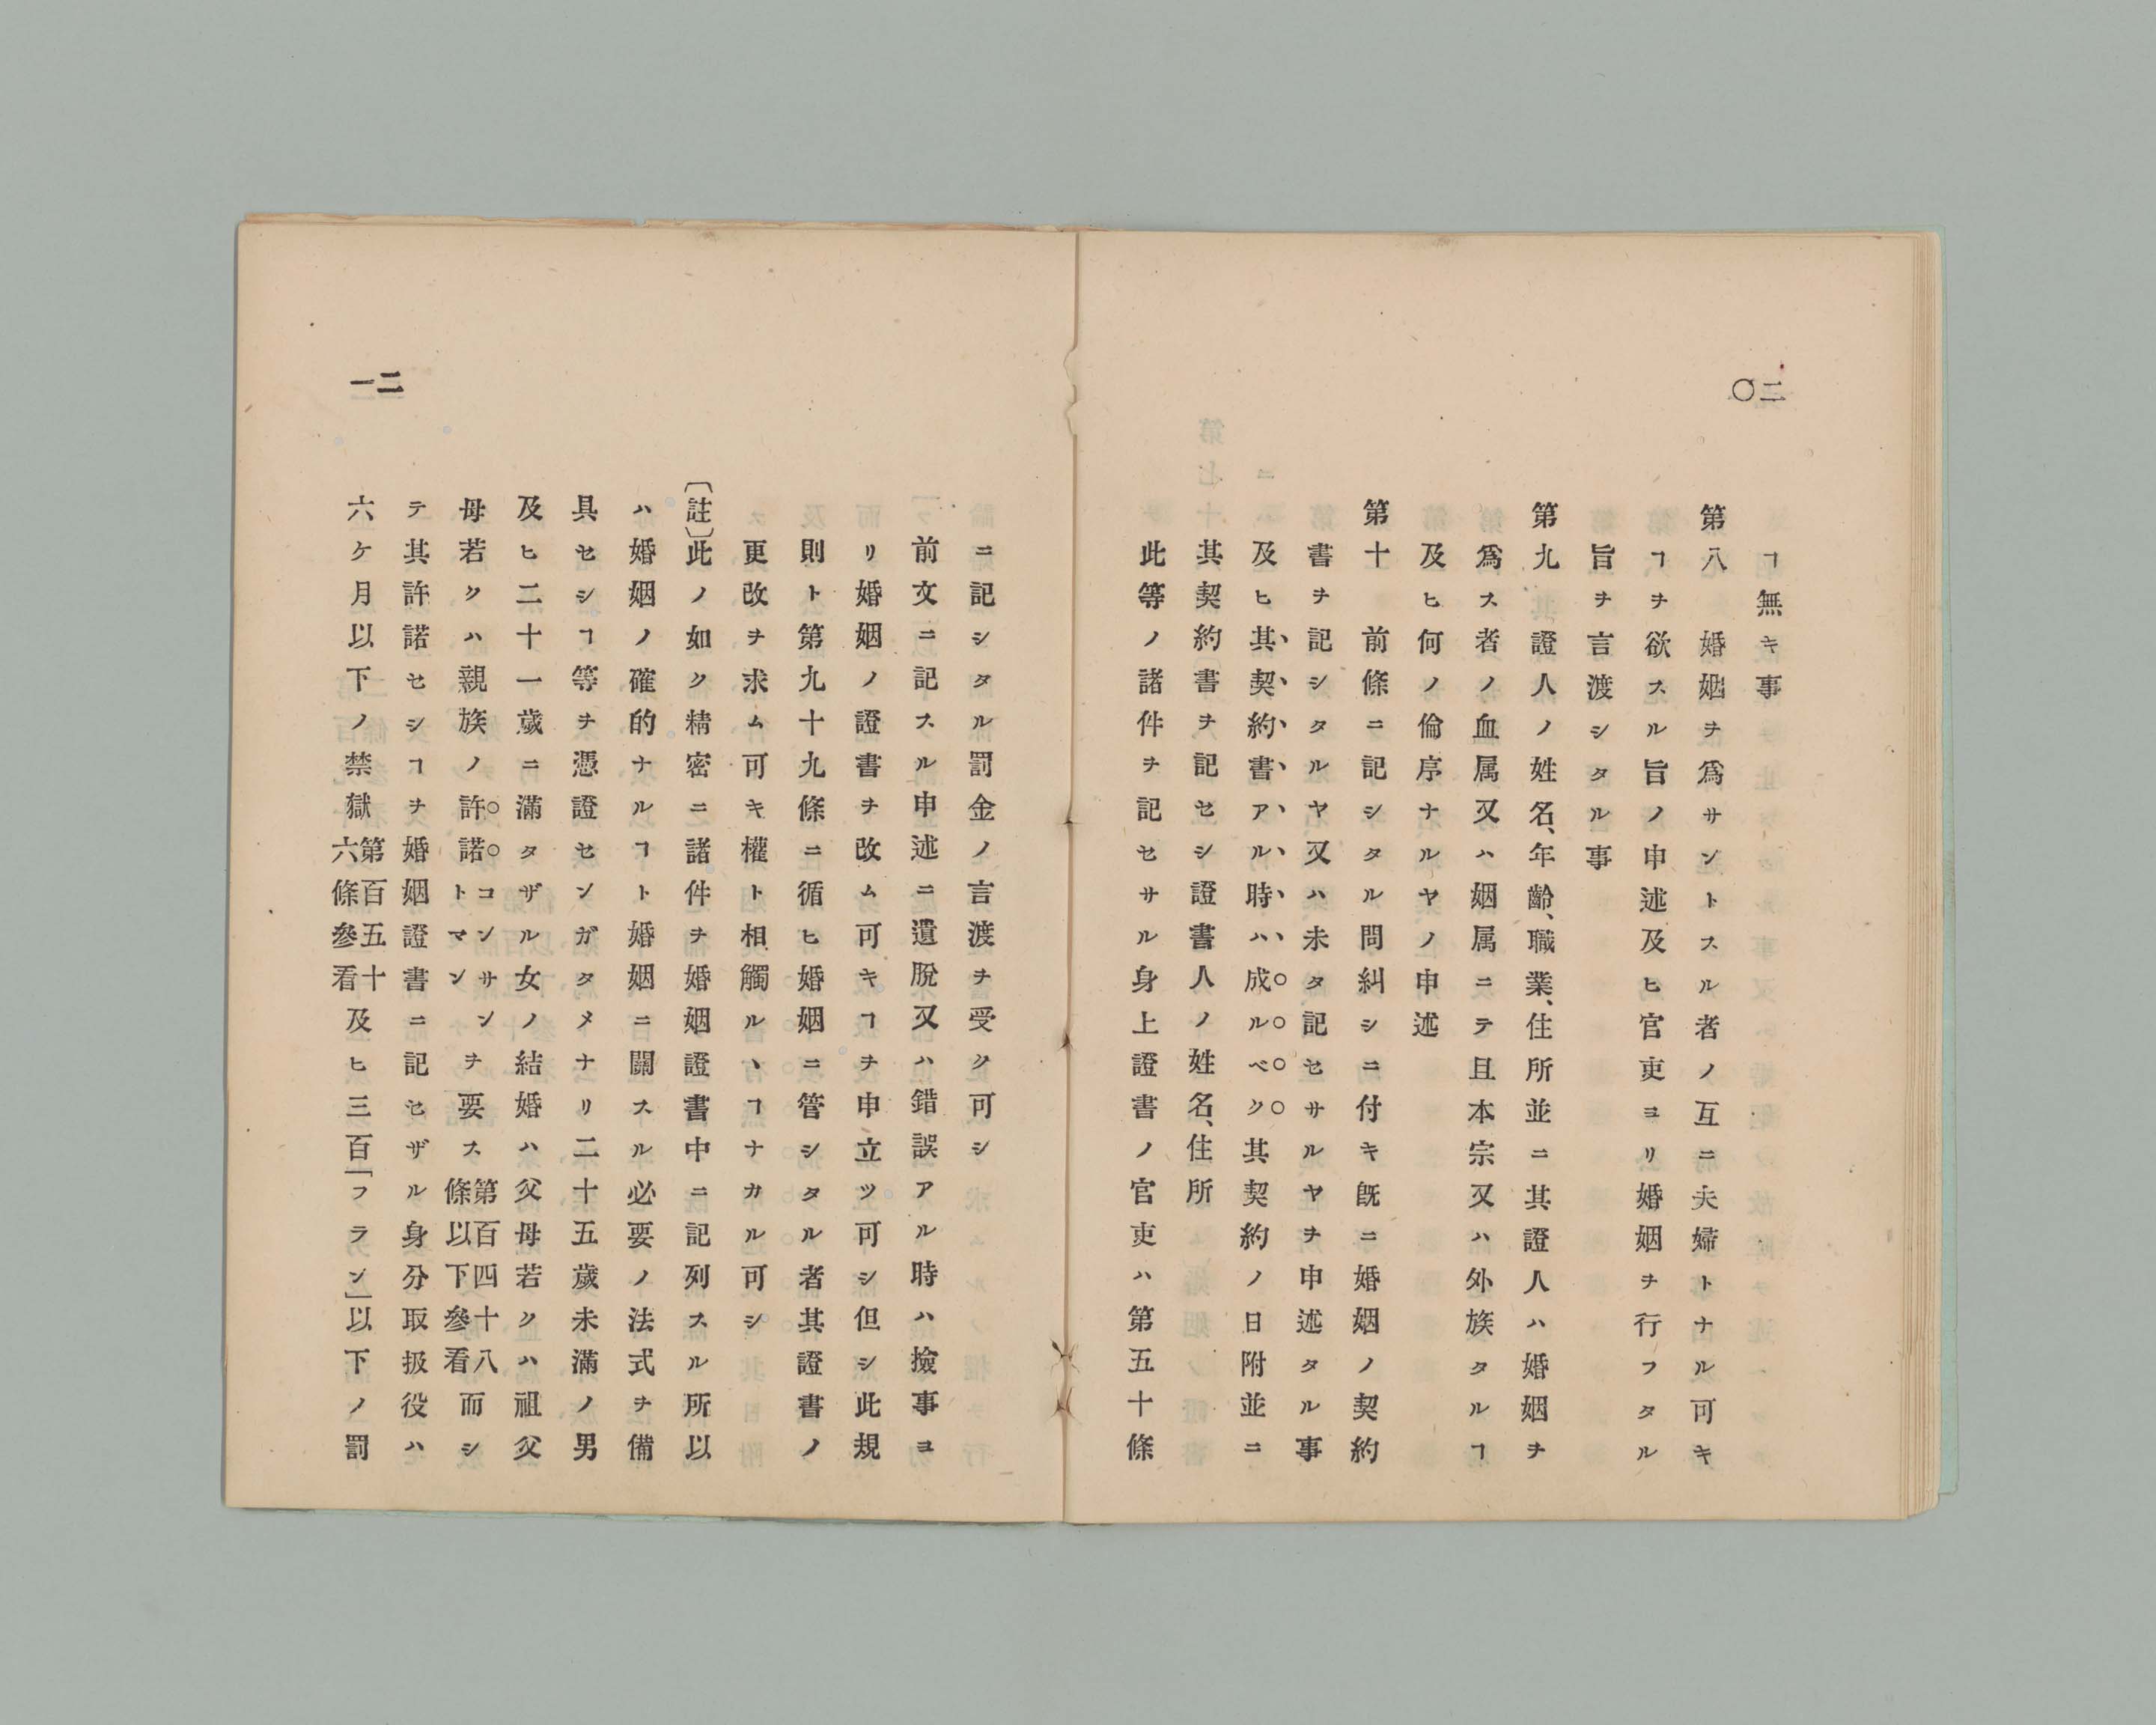 二〇
ヿ無キ事
第八　婚姻ヲ爲サントスル者ノ互ニ夫婦トナル可キ
ヿヲ欲スル旨ノ申述及ヒ官吏ヨリ婚姻ヲ行フタル
旨ヲ言渡シタル事
第九　證人ノ姓名、年齡、職業、住所並ニ其證人ハ婚姻ヲ
爲ス者ノ血属又ハ姻属ニテ且本宗又ハ外族タルヿ
及ヒ何ノ倫序ナルヤノ申述
第十　前條ニ記シタル問糾シニ付キ既ニ婚姻ノ契約
書ヲ記シタルヤ又ハ未タ記セサルヤヲ申述タル事
及ヒ其契約書アル時ハ成ルベク其契約ノ日附並ニ
其契約書ヲ記セシ證書人ノ姓名、住所
此等ノ諸件ヲ記セサル身上證書ノ官吏ハ第五十條
二一
ニ記シタル罰金ノ言渡ヲ受ク可シ
前文ニ記スル申述ニ遺脫又ハ錯誤アル時ハ撿事ヨ
リ婚姻ノ證書ヲ改ム可キヿヲ申立ツ可シ但シ此規
則ト第九十九條ニ循ヒ婚姻ニ管シタル者其證書ノ
更改ヲ求ム可キ權ト相觸ルヽヿナカル可シ
〔註〕此ノ如ク精密ニ諸件ヲ婚姻證書中ニ記列スル所以
ハ婚姻ノ確的ナルヿト婚姻ニ關スル必要ノ法式ヲ備
具セシヿ等ヲ憑證センガタメナリ二十五歲未滿ノ男
及ヒ二十一歲ニ滿タザル女ノ結婚ハ父母若クハ祖父
母若クハ親族ノ許諾コンサントマンヲ要ス第百四十八條以下參看而シ
テ其許諾セシヿヲ婚姻證書ニ記セザル身分取扱役ハ
六ケ月以下ノ禁獄第百五十六條參看及ヒ三百「フラン」以下ノ罰